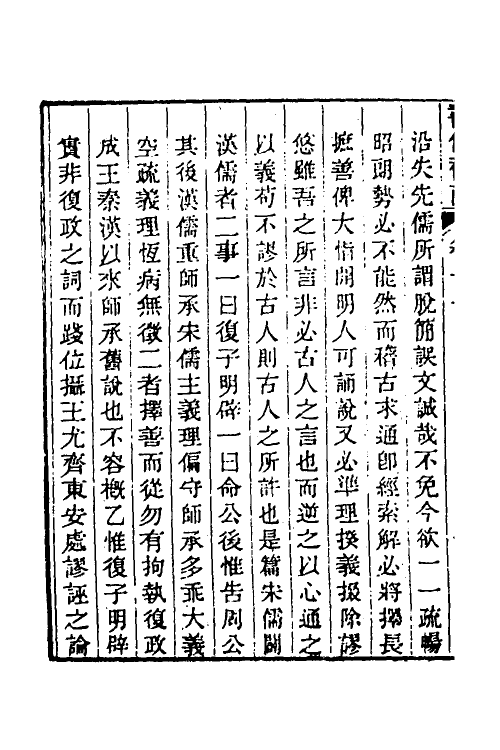 沿失先儒所謂脫簡誤文誠哉不免今欲一一疏暢
昭朗勢必不能然而稽古求通卽經索解必將擇長
摭善俾大恉開明人可誦說又必準理揆義掇除謬
悠雖吾之所言非必古人之言也而逆之以心通之
以義苟不謬於古人則古人之所許也是篇宋儒闢
漢儒者二事一曰復子明辟一曰命公後惟告周公
其後漢儒重師承宋儒主義理偏守師承多乖大義
空疏義理恆病無徵二者擇善而從勿有拘執復政
成王秦漢以來師承舊說也不容槪乙惟復子明辟
實非復政之詞而踐位攝王尤齊東安處謬誣之論